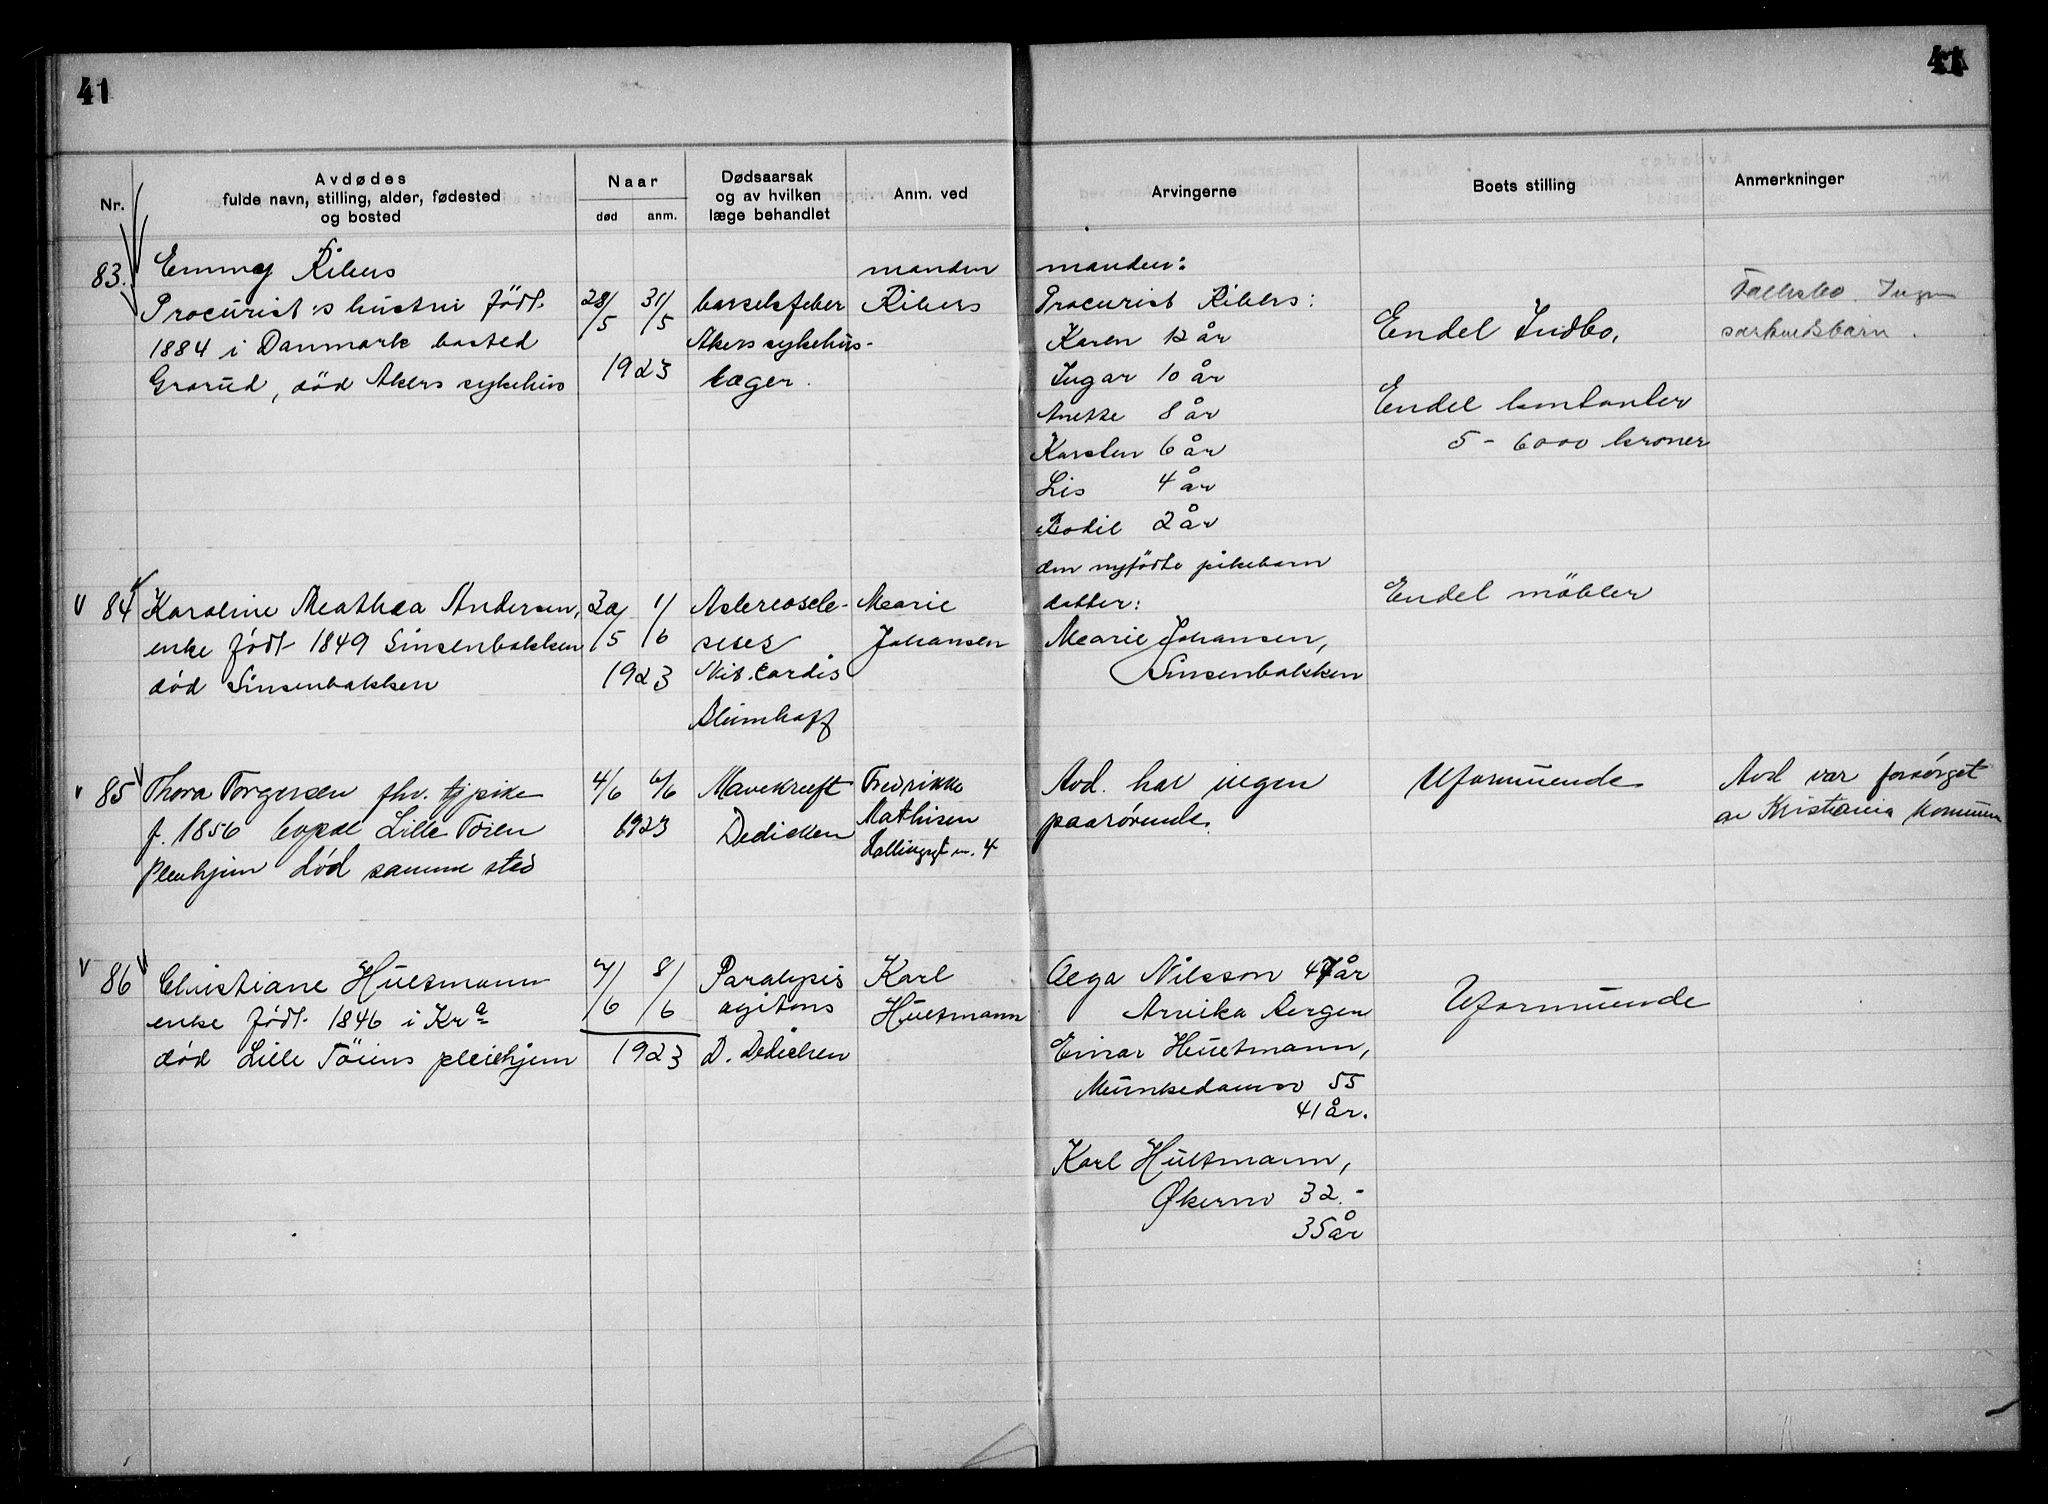 41
41
Nr.
Avdødes
fulde navn, stilling, alder, fødested
og bosted
Naar
død
anm.
Dødsaarsak
og av hvilken
læge behandlet
Anm. ved
Arvingerne
Boets stilling
Anmerkninger
83.
Emmy Ribers
Procurist's hustru født
1884 i Danmark bosted
Grorud, død Akers sykehus
28/5 31/5
1923
barselsfeber
Akers sykehus-
læger.
manden
Ribers
manden:
Procurist Ribers:
Karen 12 år
Ingar 10 år
Anette 8 år
Karsten 6 år
Lis 4 år
Bodil 2 år
den nyfødte pikebarn
Endel Indbo,
Endel kontanter
5-6000 kroner
Fællesbo. Ingen
særkuldsbarn.
v 84
Karoline Mathea Andersen,
enke født 1849 Sinsenbakken
død Sinsenbakken
30/5 1/6
1923
Astereoscle-
roses
Vit. Cordis
Blumhoff
Marie
Johansen
datter:
Marie Johansen,
Sinsenbakken
Endel möbler
v 85
Thora Torgersen fhv. tjpike
f. 1856 bopæl Lille Töien
Pleiehjem død samme sted
4/6 6/6
1923
Mavekræft
Dedichen
Fredrikke
Mathisen
Hallingsgt n. 4
Avd. har ingen
paarørende.
Uformuende
Avd var forsörget
av Kristiania kommune
v 86
Christiane Hultmann
enke født 1846 i Kra
død Lille Töiens pleiehjem
7/6 8/6
1923
Paralysis
agitans
D. Dedichen
Karl
Hultmann
Olga Nilsson 47 år
Arvika Bergen
Einar Hultmann,
Munkedamsv 55
41 år.
Karl Hultmann,
Økernv 32.-
35 år
Uformuende